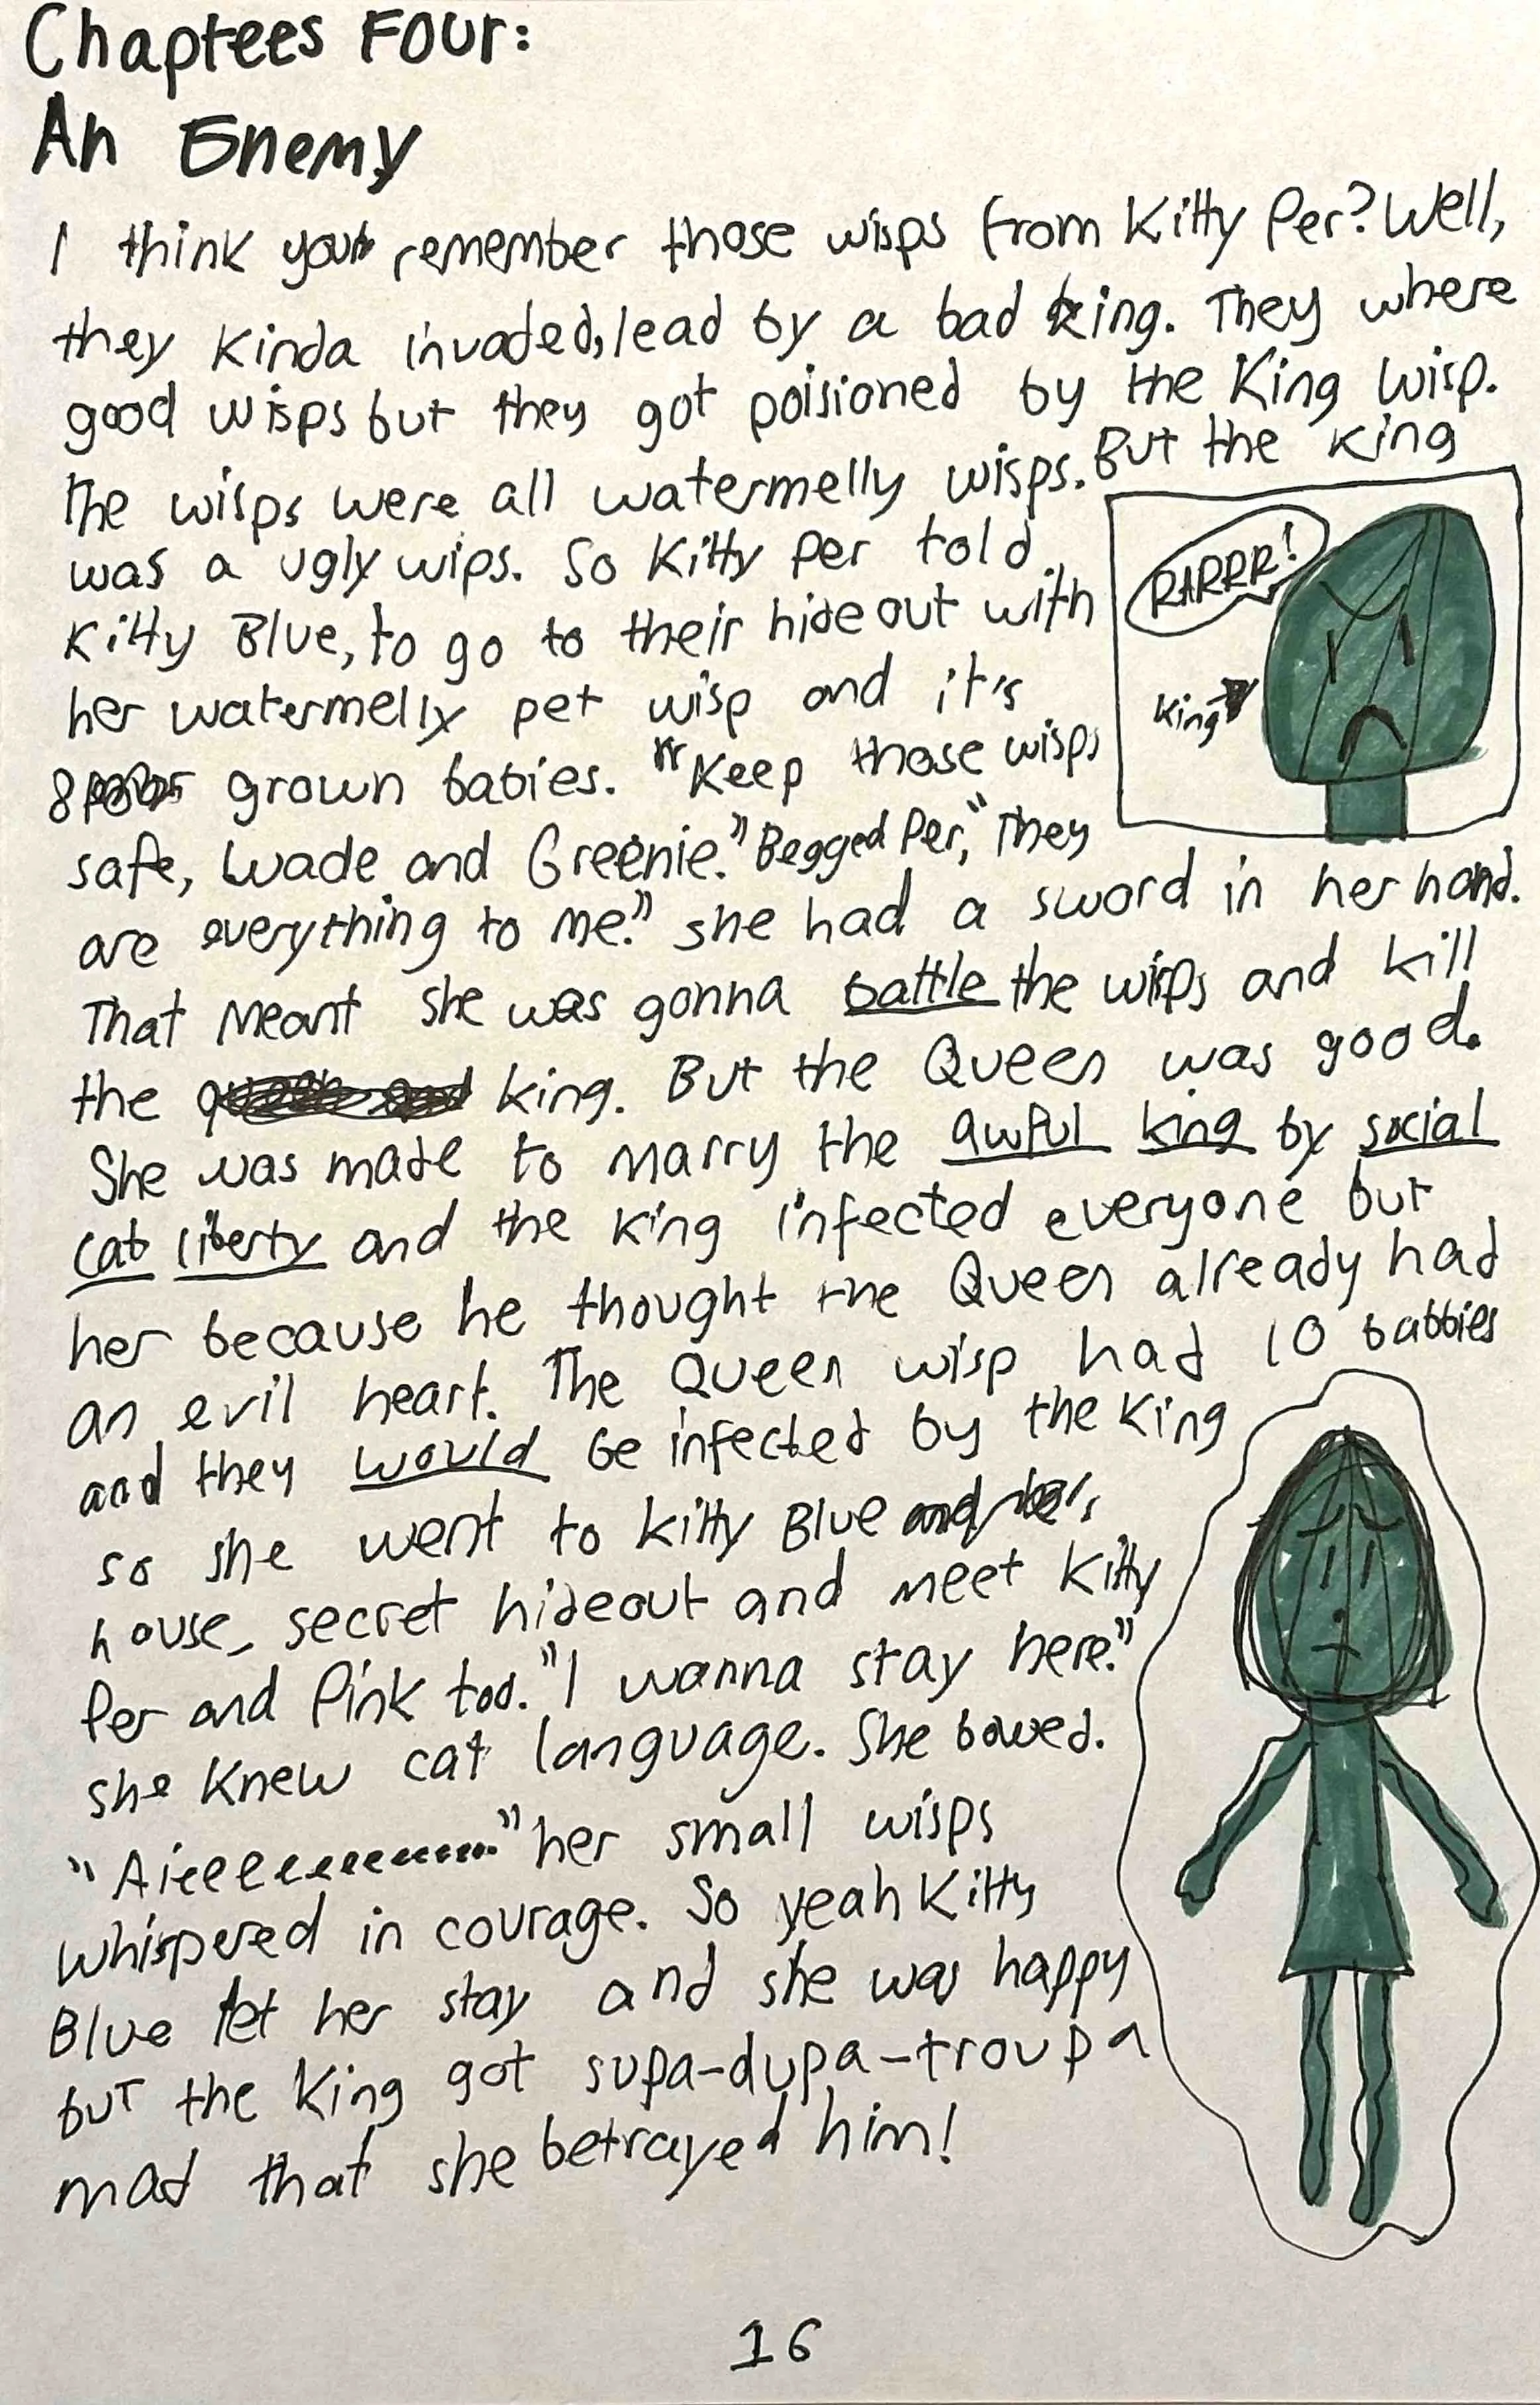 Chaptees Four:
An Enemy
I think you remember those wisps from Kitty Per? Well,
they kinda invaded, lead by a bad king. They where
good wisps but they got poisioned by the King Wisp.
The wisps were all watermelly wisps. But the king
was a ugly wips. So Kitty Per told
Kitty Blue, to go to their hideout with
her watermelly pet wisp and it's
8 grown babies. "Keep those wisps
safe, Wade and Greenie." Begged Per, "They
are everything to me." she had a sword in her hand.
That meant she was gonna battle the wisps and kill
the king. But the Queen was good.
She was made to marry the awful king by social
cat liberty and the king infected everyone but
her because he thought the Queen already had
an evil heart. The Queen wisp had 10 babbies
and they would be infected by the King
so she went to Kitty Blue
house, secret hideout and meet Kitty
Per and Pink too. "I wanna stay here."
she knew cat language. She bowed.
"Aieeeeeeeeeee..." her small wisps
whispered in courage. So yeah Kitty
Blue let her stay and she was happy
but the King got supa-dupa-troupa
mad that she betrayed him!
RARRR!
King
16